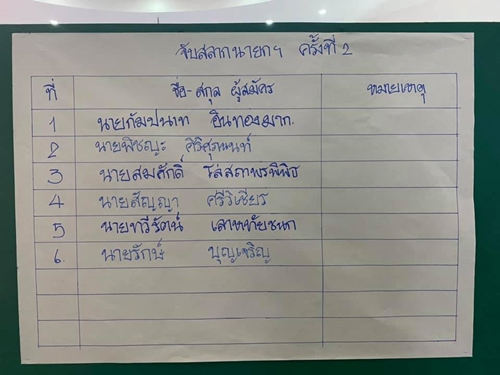 จับสลากนายกฯ ครั้งที่ 2
ที่ ชื่อ-สกุล ผู้สมัคร หมายเหตุ
1 นายกัมปนาท อินทองมาก.
2 นายพิชญะ ศิริศุภนนท์
3 นายสมศักดิ์ โล่สถาพรพิพิธ
4 นายสัญญา ศรีวิเชียร
5 นายทวีรัตน์ เสาหทัยชนก
6. นายรักษ์ บุญเจริญ